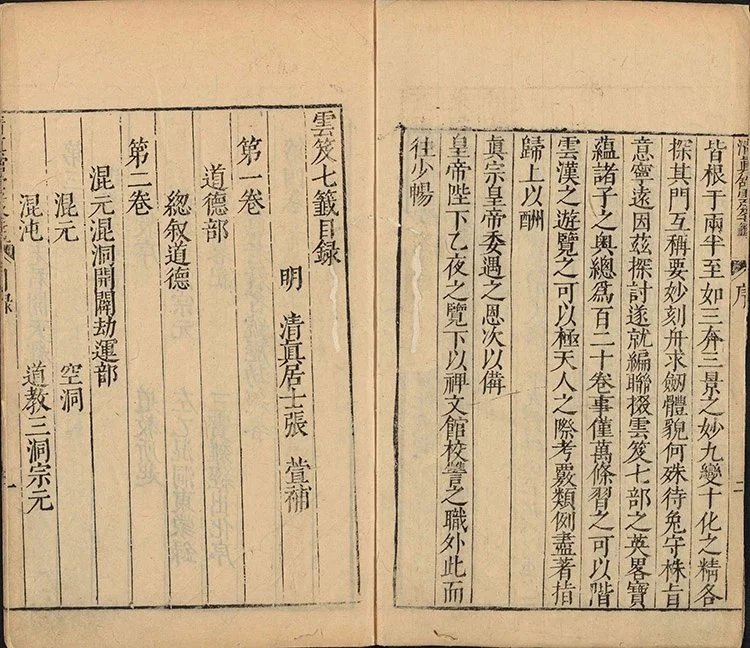 皆根于兩半至如三奔三景之妙九變十化之精各
探其門互稱要妙刻舟求劒體貌何殊待兎守株旨
意寧遠因茲探討遂就編聯掇雲笈七部之英畧寶
蘊諸子之奧總爲百二十卷事僅萬條習之可以階
雲漢之遊覽之可以極天人之際考覈類例盡著指
歸上以酬
眞宗皇帝委遇之恩次以備
皇帝陛下乙夜之覽下以裨文館校讐之職外此而
往少暢
序
二
雲笈七籤目録
明 清眞居士張 萱補
第一卷
道德部
緫叙道德
第二卷
混元混洞開闢劫運部
混元 空洞
混沌 道教三洞宗元
目録
一